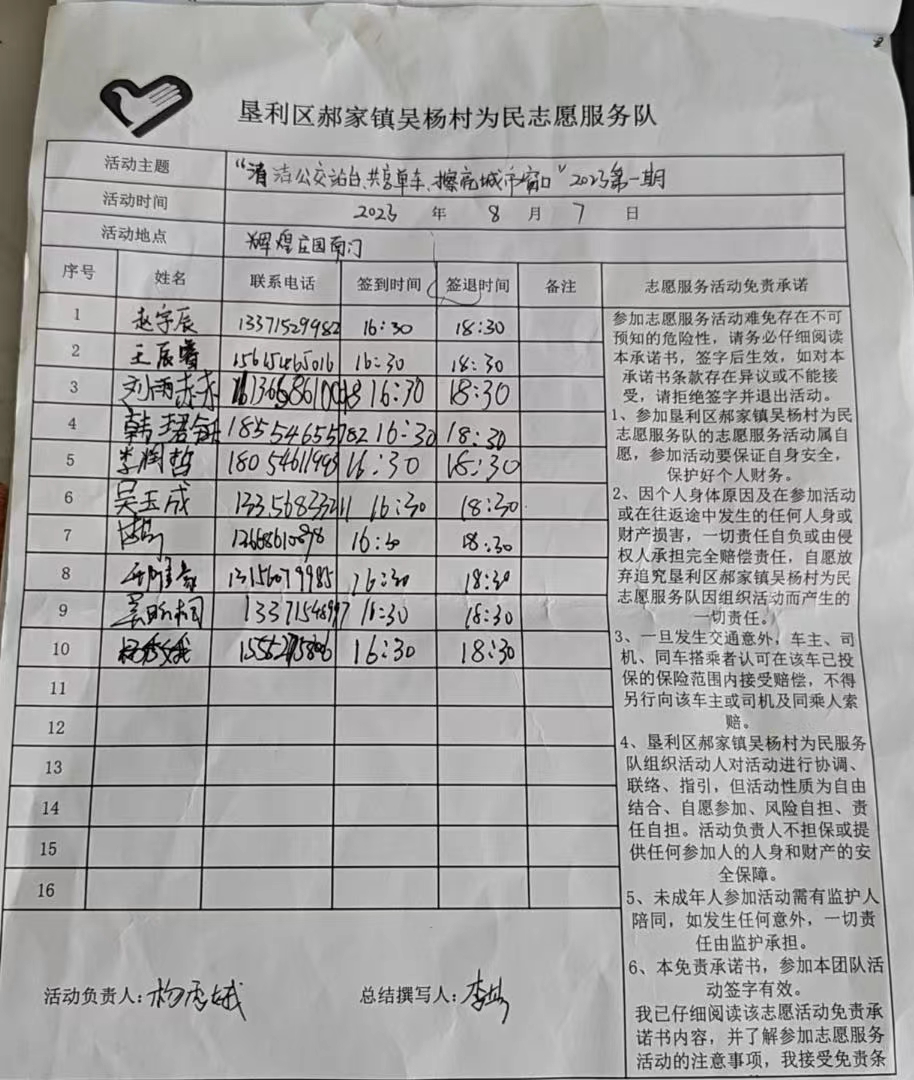 垦利区郝家镇吴杨村为民志愿服务队
活动主题 “清洁公交站台、共享单车、擦亮城市窗口”2023第一期
活动时间 2023 年 8 月 7 日
活动地点 辉煌庄园南门
序号 姓名 联系电话 签到时间 签退时间 备注 志愿服务活动免责承诺
1 赵宇辰 13371529982 16:30 18:30
2 王辰睿 15615465016 16:30 18:30
3 刘雨赤 16:30 18:30
4 韩珺钰 18554655782 16:30 18:30
5 李润哲 18054611993 16:30 18:30
6 吴玉成 16:30 18:30
7 16:30 18:30
8 13156079985 16:30 18:30
9 16:30 18:30
10 杨秀娥 16:30 18:30
11
12
13
14
15
16
参加志愿服务活动难免存在不可
预知的危险性，请务必仔细阅读
本承诺书，签字后生效，如对本
承诺书条款存在异议或不能接
受，请拒绝签字并退出活动。
1、参加垦利区郝家镇吴杨村为民
志愿服务队的志愿服务活动属自
愿，参加活动要保证自身安全，
保护好个人财务。
2、因个人身体原因及在参加活动
或在往返途中发生的任何人身或
财产损害，一切责任自负或由侵
权人承担完全赔偿责任，自愿放
弃追究垦利区郝家镇吴杨村为民
志愿服务队因组织活动而产生的
一切责任。
3、一旦发生交通意外，车主、司
机、同车搭乘者认可在该车已投
保的保险范围内接受赔偿，不得
另行向该车主或司机及同乘人索
赔。
4、垦利区郝家镇吴杨村为民服务
队组织活动人对活动进行协调、
联络、指引，但活动性质为自由
结合、自愿参加、风险自担、责
任自担。活动负责人不担保或提
供任何参加人的人身和财产的安
全保障。
5、未成年人参加活动需有监护人
陪同，如发生任何意外，一切责
任由监护承担。
6、本免责承诺书，参加本团队活
动签字有效。
我已仔细阅读该志愿活动免责承
诺书内容，并了解参加志愿服务
活动的注意事项，我接受免责条
活动负责人：杨秀娥 总结撰写人：李